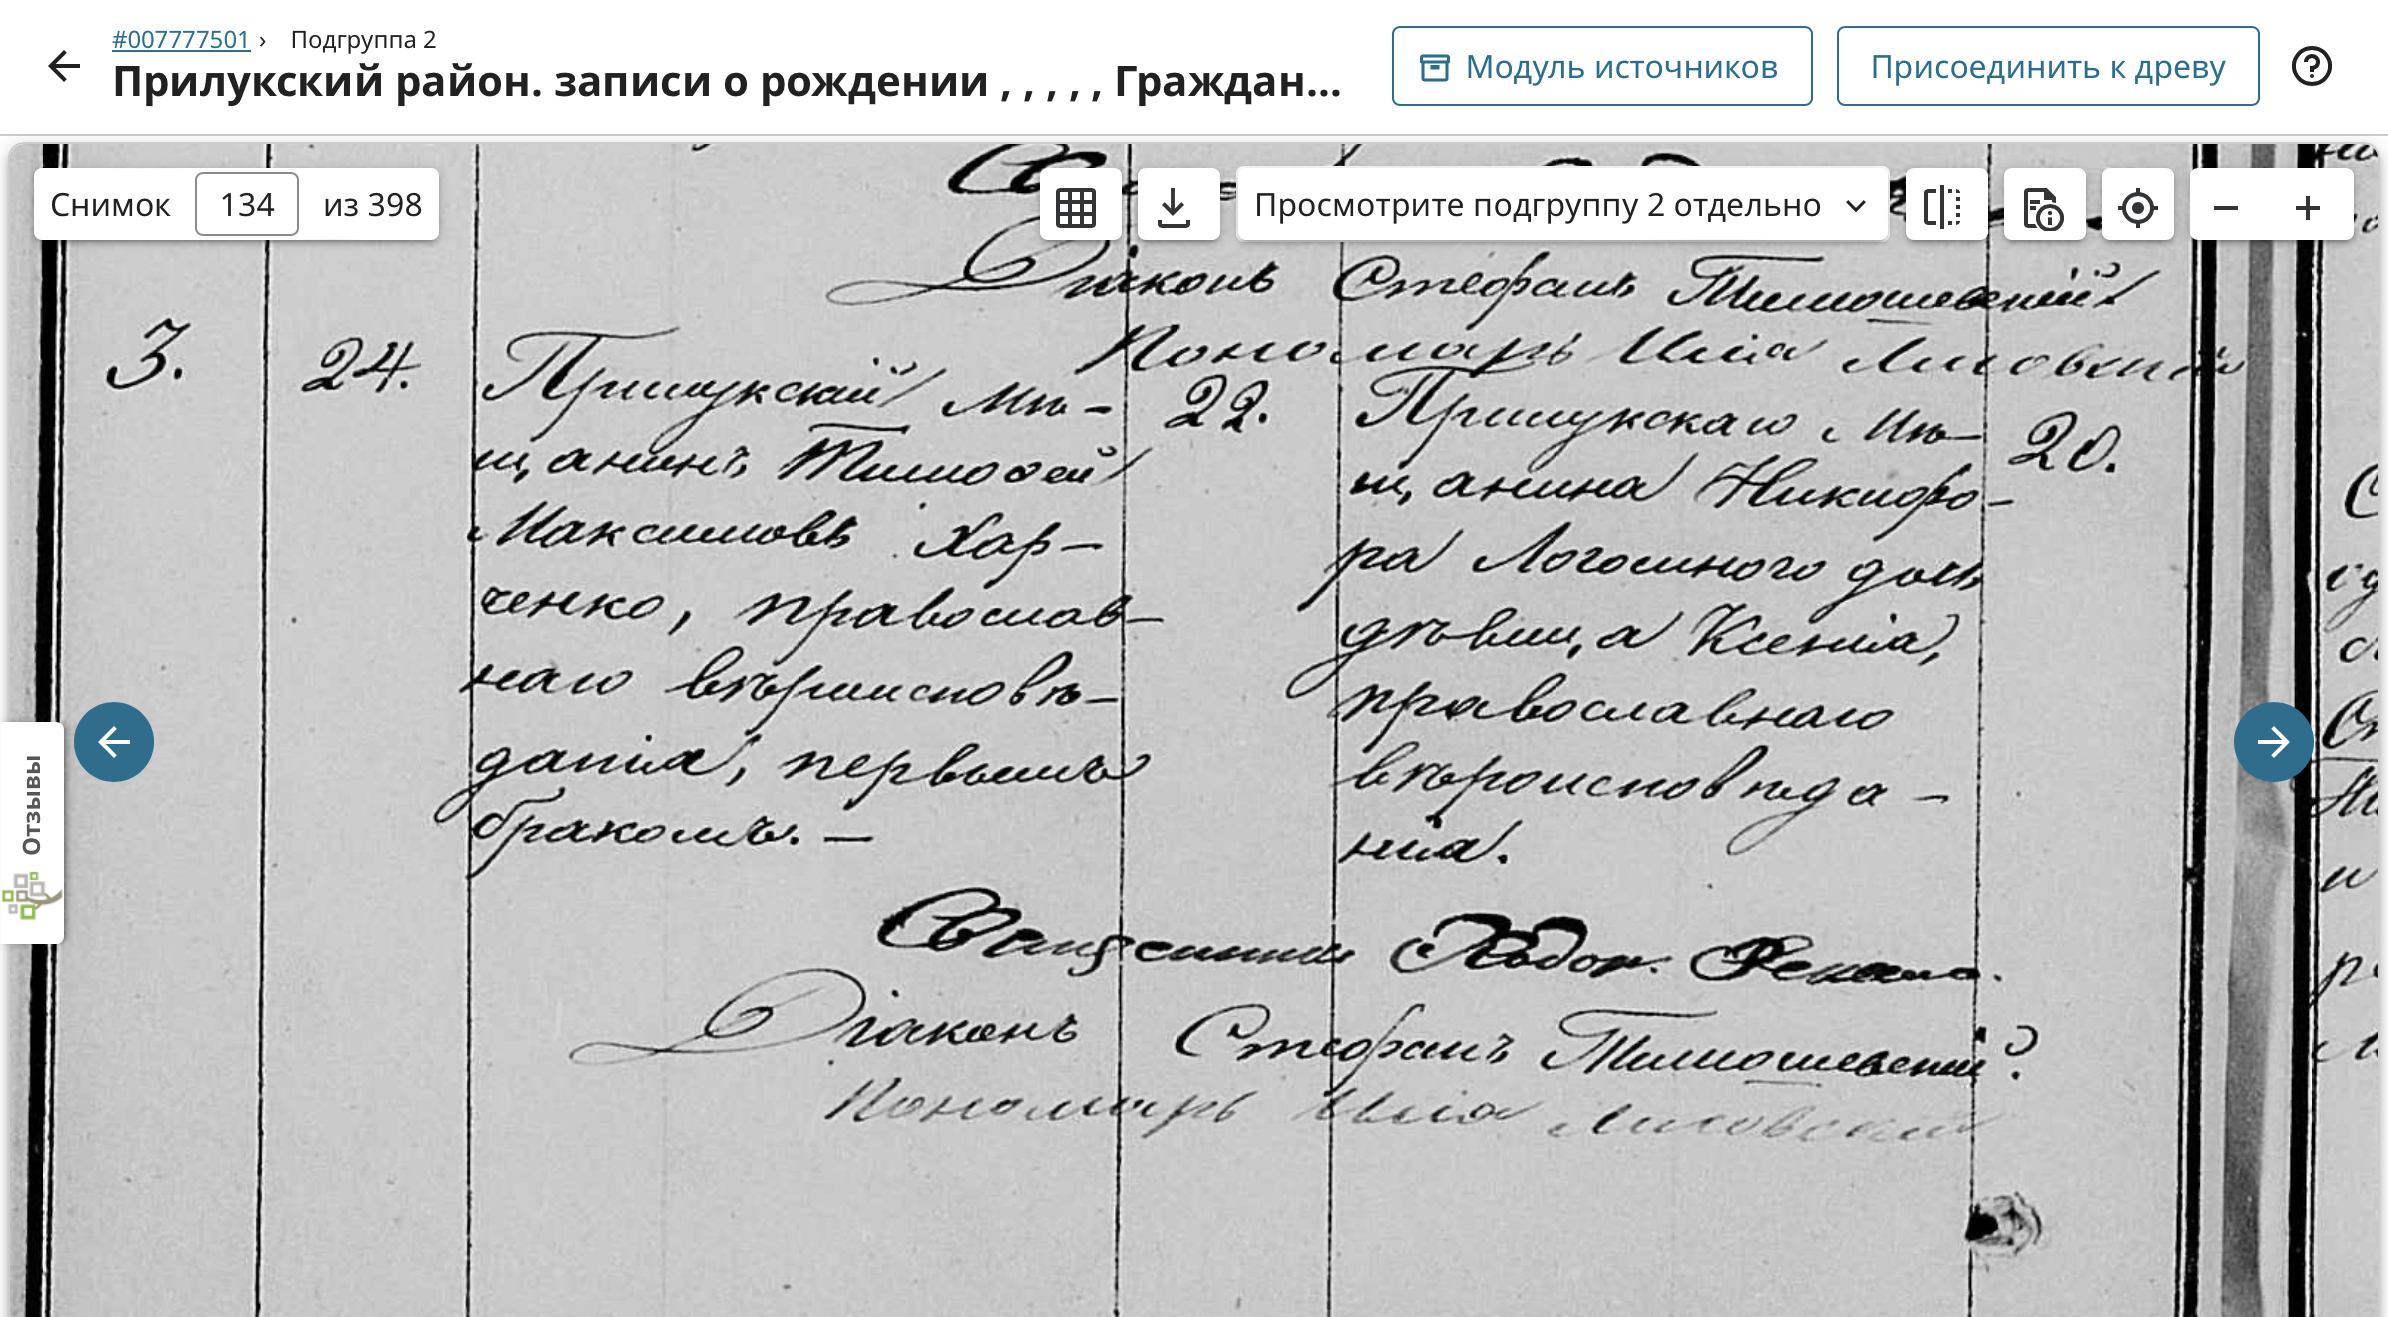 #007777501 › Подгруппа 2
Прилукский район. записи о рождении , , , , , Граждан...
Модуль источников
Присоединить к древу
Снимок 134 из 398
Просмотрите подгруппу 2 отдельно
Отзывы
Діаконъ Стефанъ Тимошевскій
Пономарь Илія Лисовскій
3.
24.
Прилукскій мѣ-
щанинъ Тимофей
Максимовъ Хар-
ченко, православ-
наго вѣроисповѣ-
данія, первымъ
бракомъ. —
22.
Прилукскаго мѣ-
щанина Никифо-
ра Логвиного дочь
дѣвица Ксенія,
православнаго
вѣроисповѣда-
нія.
20.
Священникъ
Діаконъ Стефанъ Тимошевскій.
Пономарь Илія Лисовскій